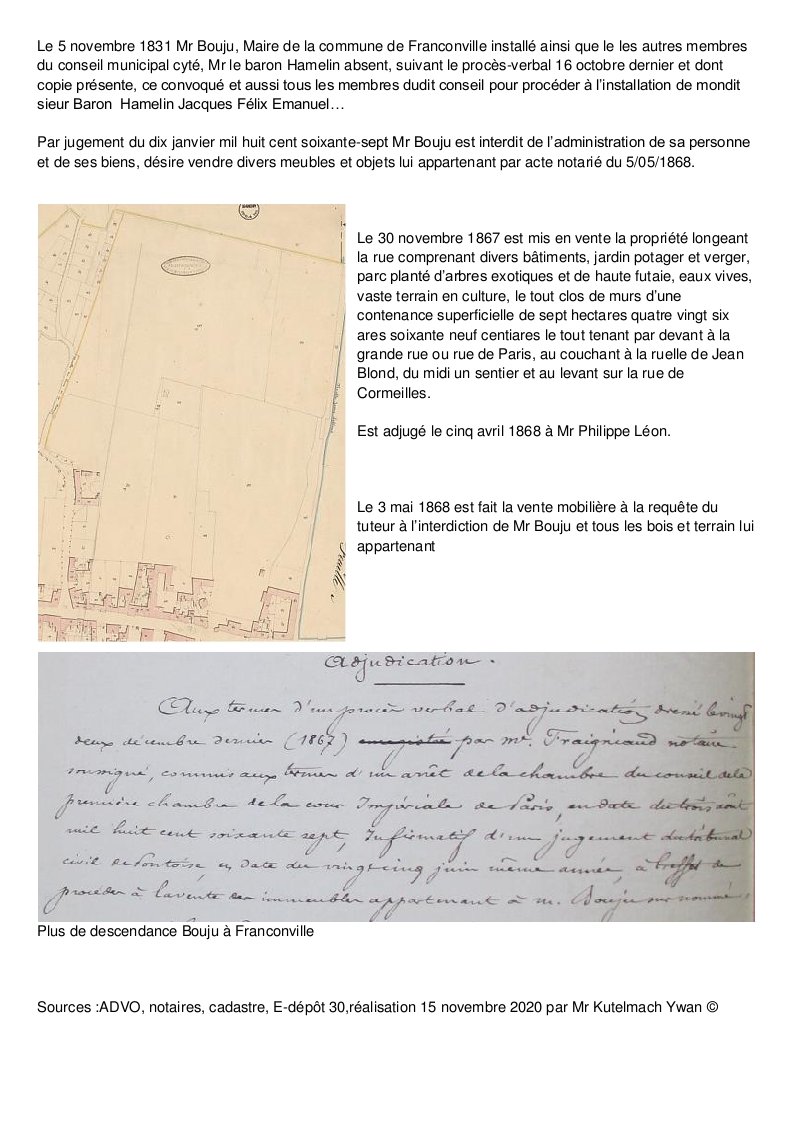 Le 5 novembre 1831 Mr Bouju, Maire de la commune de Franconville installé ainsi que le les autres membres
du conseil municipal cyté, Mr le baron Hamelin absent, suivant le procès-verbal 16 octobre dernier et dont
copie présente, ce convoqué et aussi tous les membres dudit conseil pour procéder à l’installation de mondit
sieur Baron  Hamelin Jacques Félix Emanuel…
Par jugement du dix janvier mil huit cent soixante-sept Mr Bouju est interdit de l’administration de sa personne
et de ses biens, désire vendre divers meubles et objets lui appartenant par acte notarié du 5/05/1868.
Le 30 novembre 1867 est mis en vente la propriété longeant
la rue comprenant divers bâtiments, jardin potager et verger,
parc planté d’arbres exotiques et de haute futaie, eaux vives,
vaste terrain en culture, le tout clos de murs d’une
contenance superficielle de sept hectares quatre vingt six
ares soixante neuf centiares le tout tenant par devant à la
grande rue ou rue de Paris, au couchant à la ruelle de Jean
Blond, du midi un sentier et au levant sur la rue de
Cormeilles.
Est adjugé le cinq avril 1868 à Mr Philippe Léon.
Le 3 mai 1868 est fait la vente mobilière à la requête du
tuteur à l’interdiction de Mr Bouju et tous les bois et terrain lui
appartenant
Adjudication.
Aux termes d'un procès verbal d'adjudication dressé le vingt
deux décembre dernier (1867) enregistré par Me. Fraignéaud notaire
soussigné, commis aux termes d'un arrêt de la chambre du conseil de la
première chambre de la cour Impériale de Paris, en date du trois août
mil huit cent soixante sept, Infirmatif d'un jugement du tribunal
civil de Pontoise en date du vingt cinq juin même année, à l'effet de
procéder à la vente des immeubles appartenant à M. Bouju sus nommé,
Plus de descendance Bouju à Franconville
Sources :ADVO, notaires, cadastre, E-dépôt 30,réalisation 15 novembre 2020 par Mr Kutelmach Ywan ©